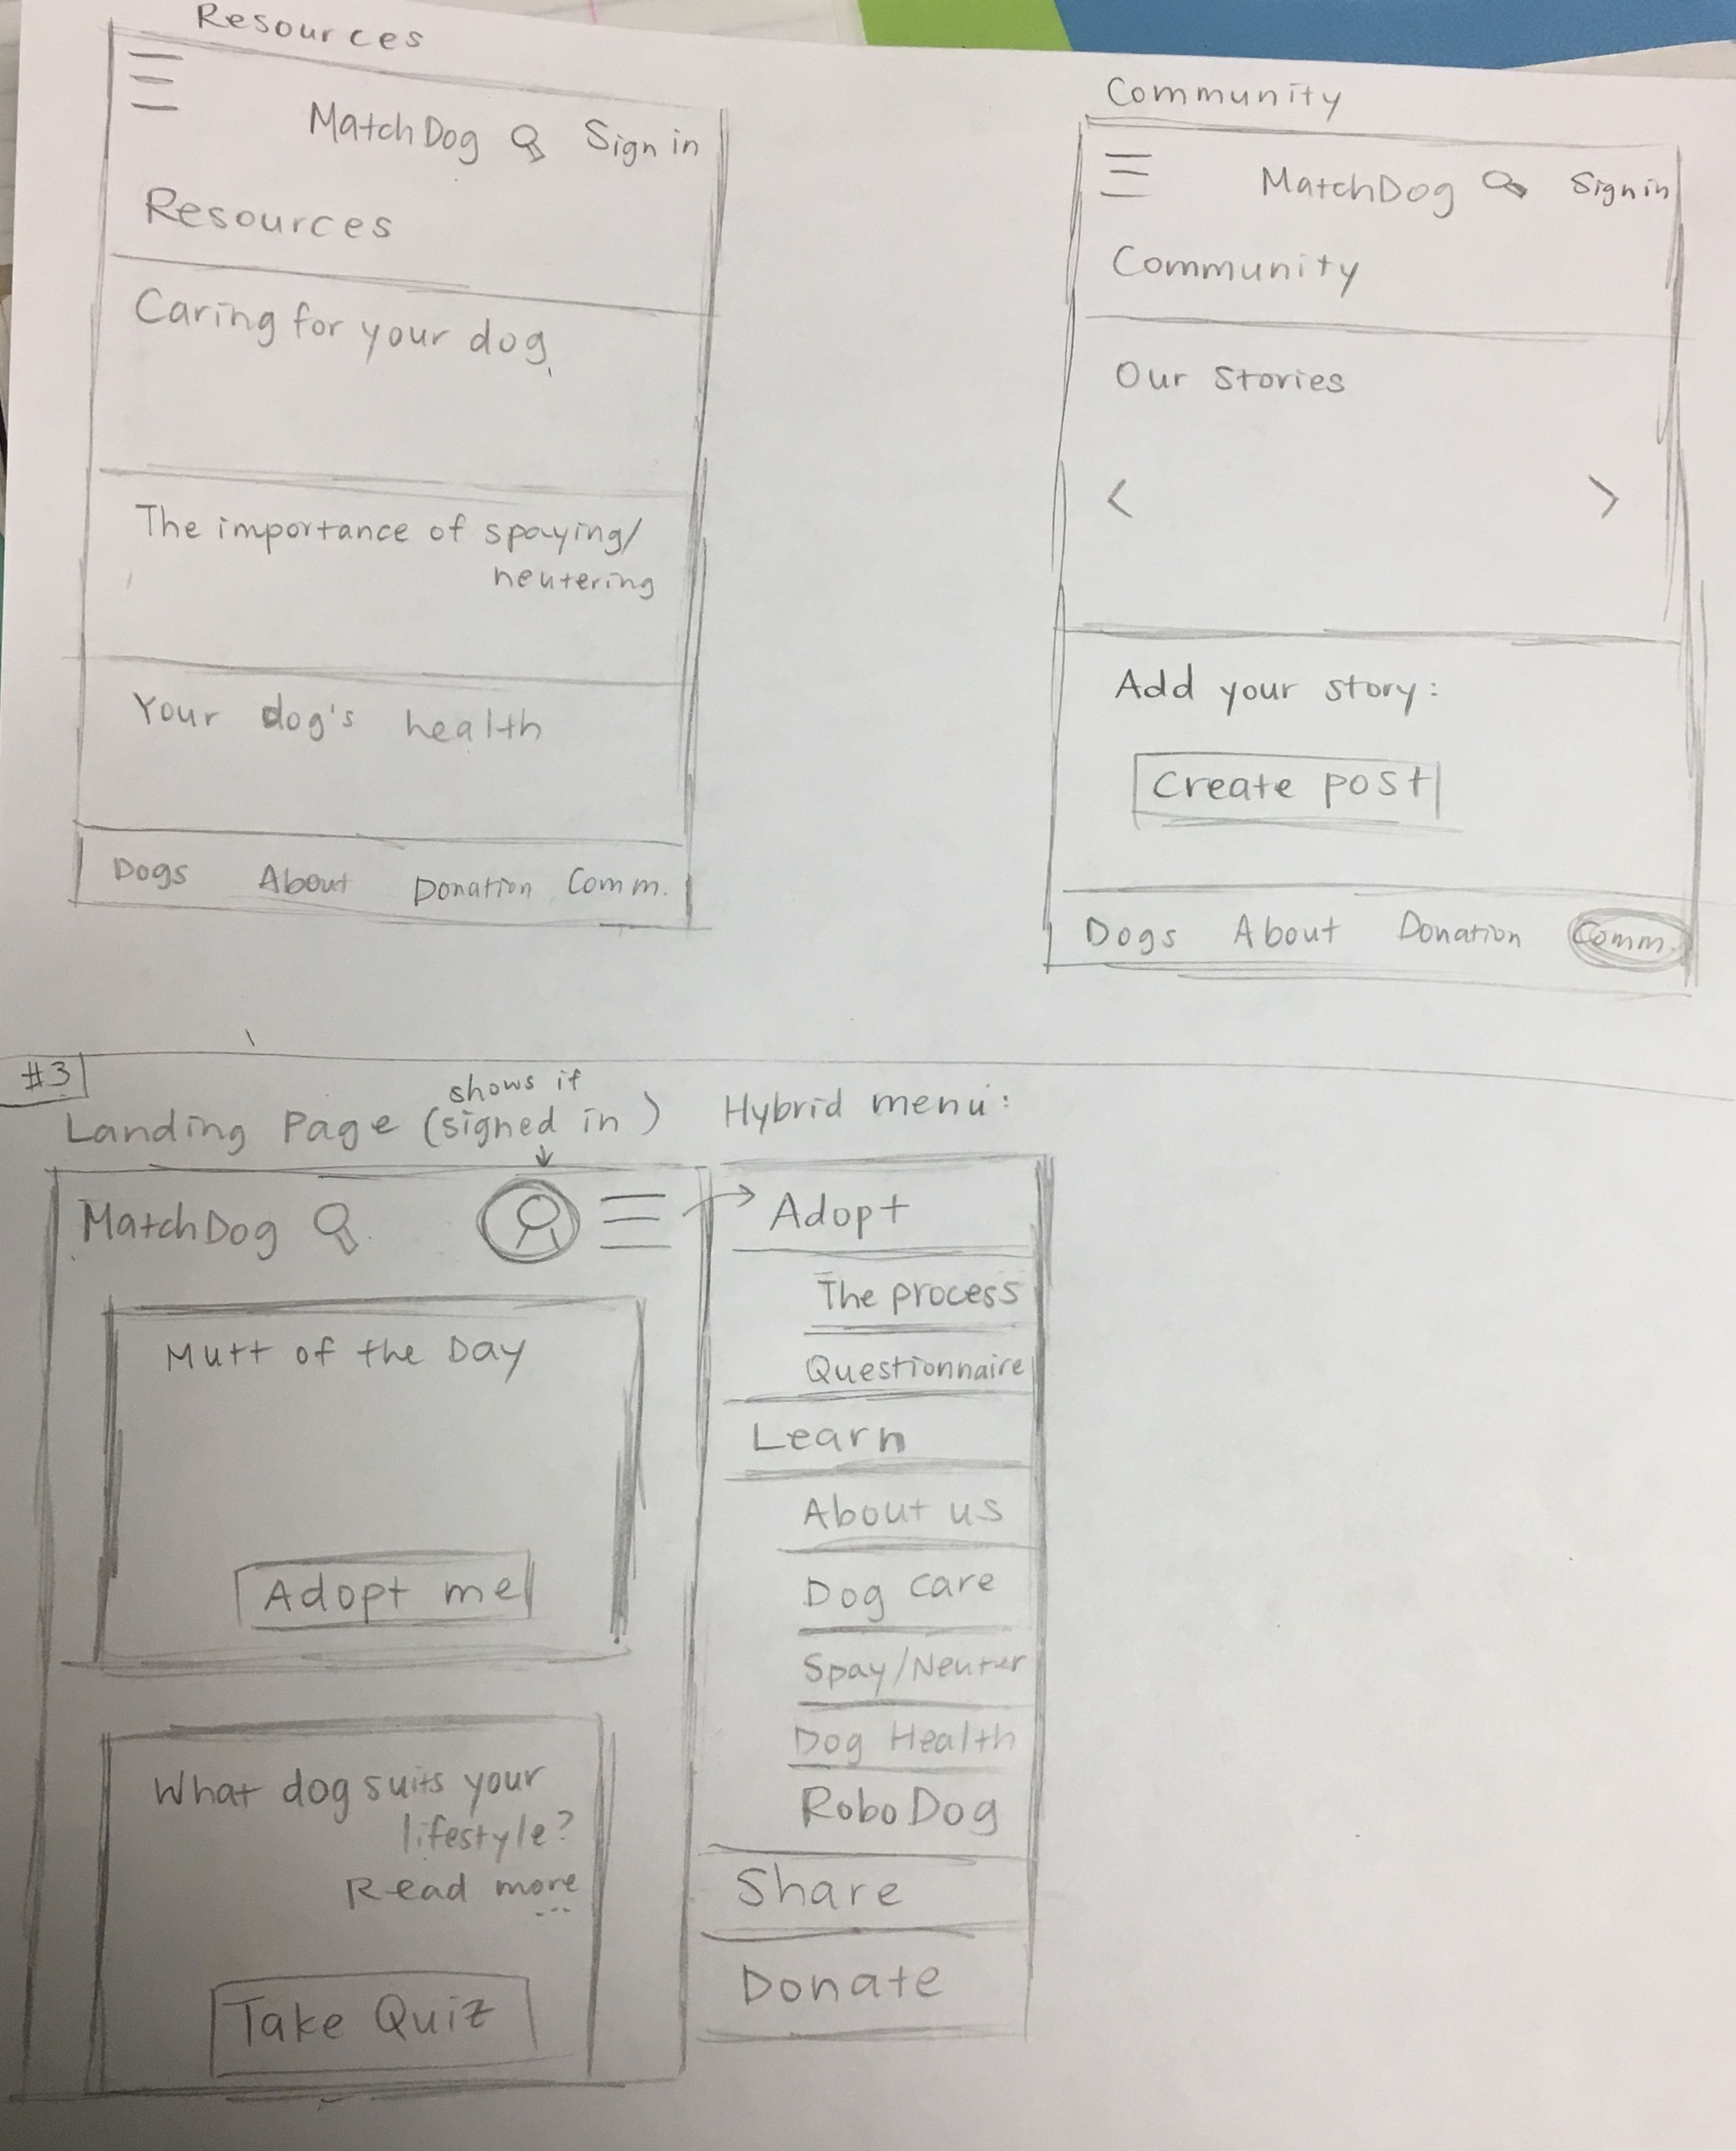 Resources
MatchDog Sign in
Resources
Caring for your dog
The importance of spaying/
neutering
Your dog's health
Dogs About Donation Comm.
Community
MatchDog Sign in
Community
Our Stories
< >
Add your story:
Create post
Dogs About Donation Comm.
#3
shows if
Landing Page (signed in)
MatchDog
Mutt of the Day
Adopt me
What dog suits your
lifestyle?
Read more
...
Take Quiz
Hybrid menu:
Adopt
The process
Questionnaire
Learn
About us
Dog care
Spay/Neuter
Dog Health
RoboDog
Share
Donate